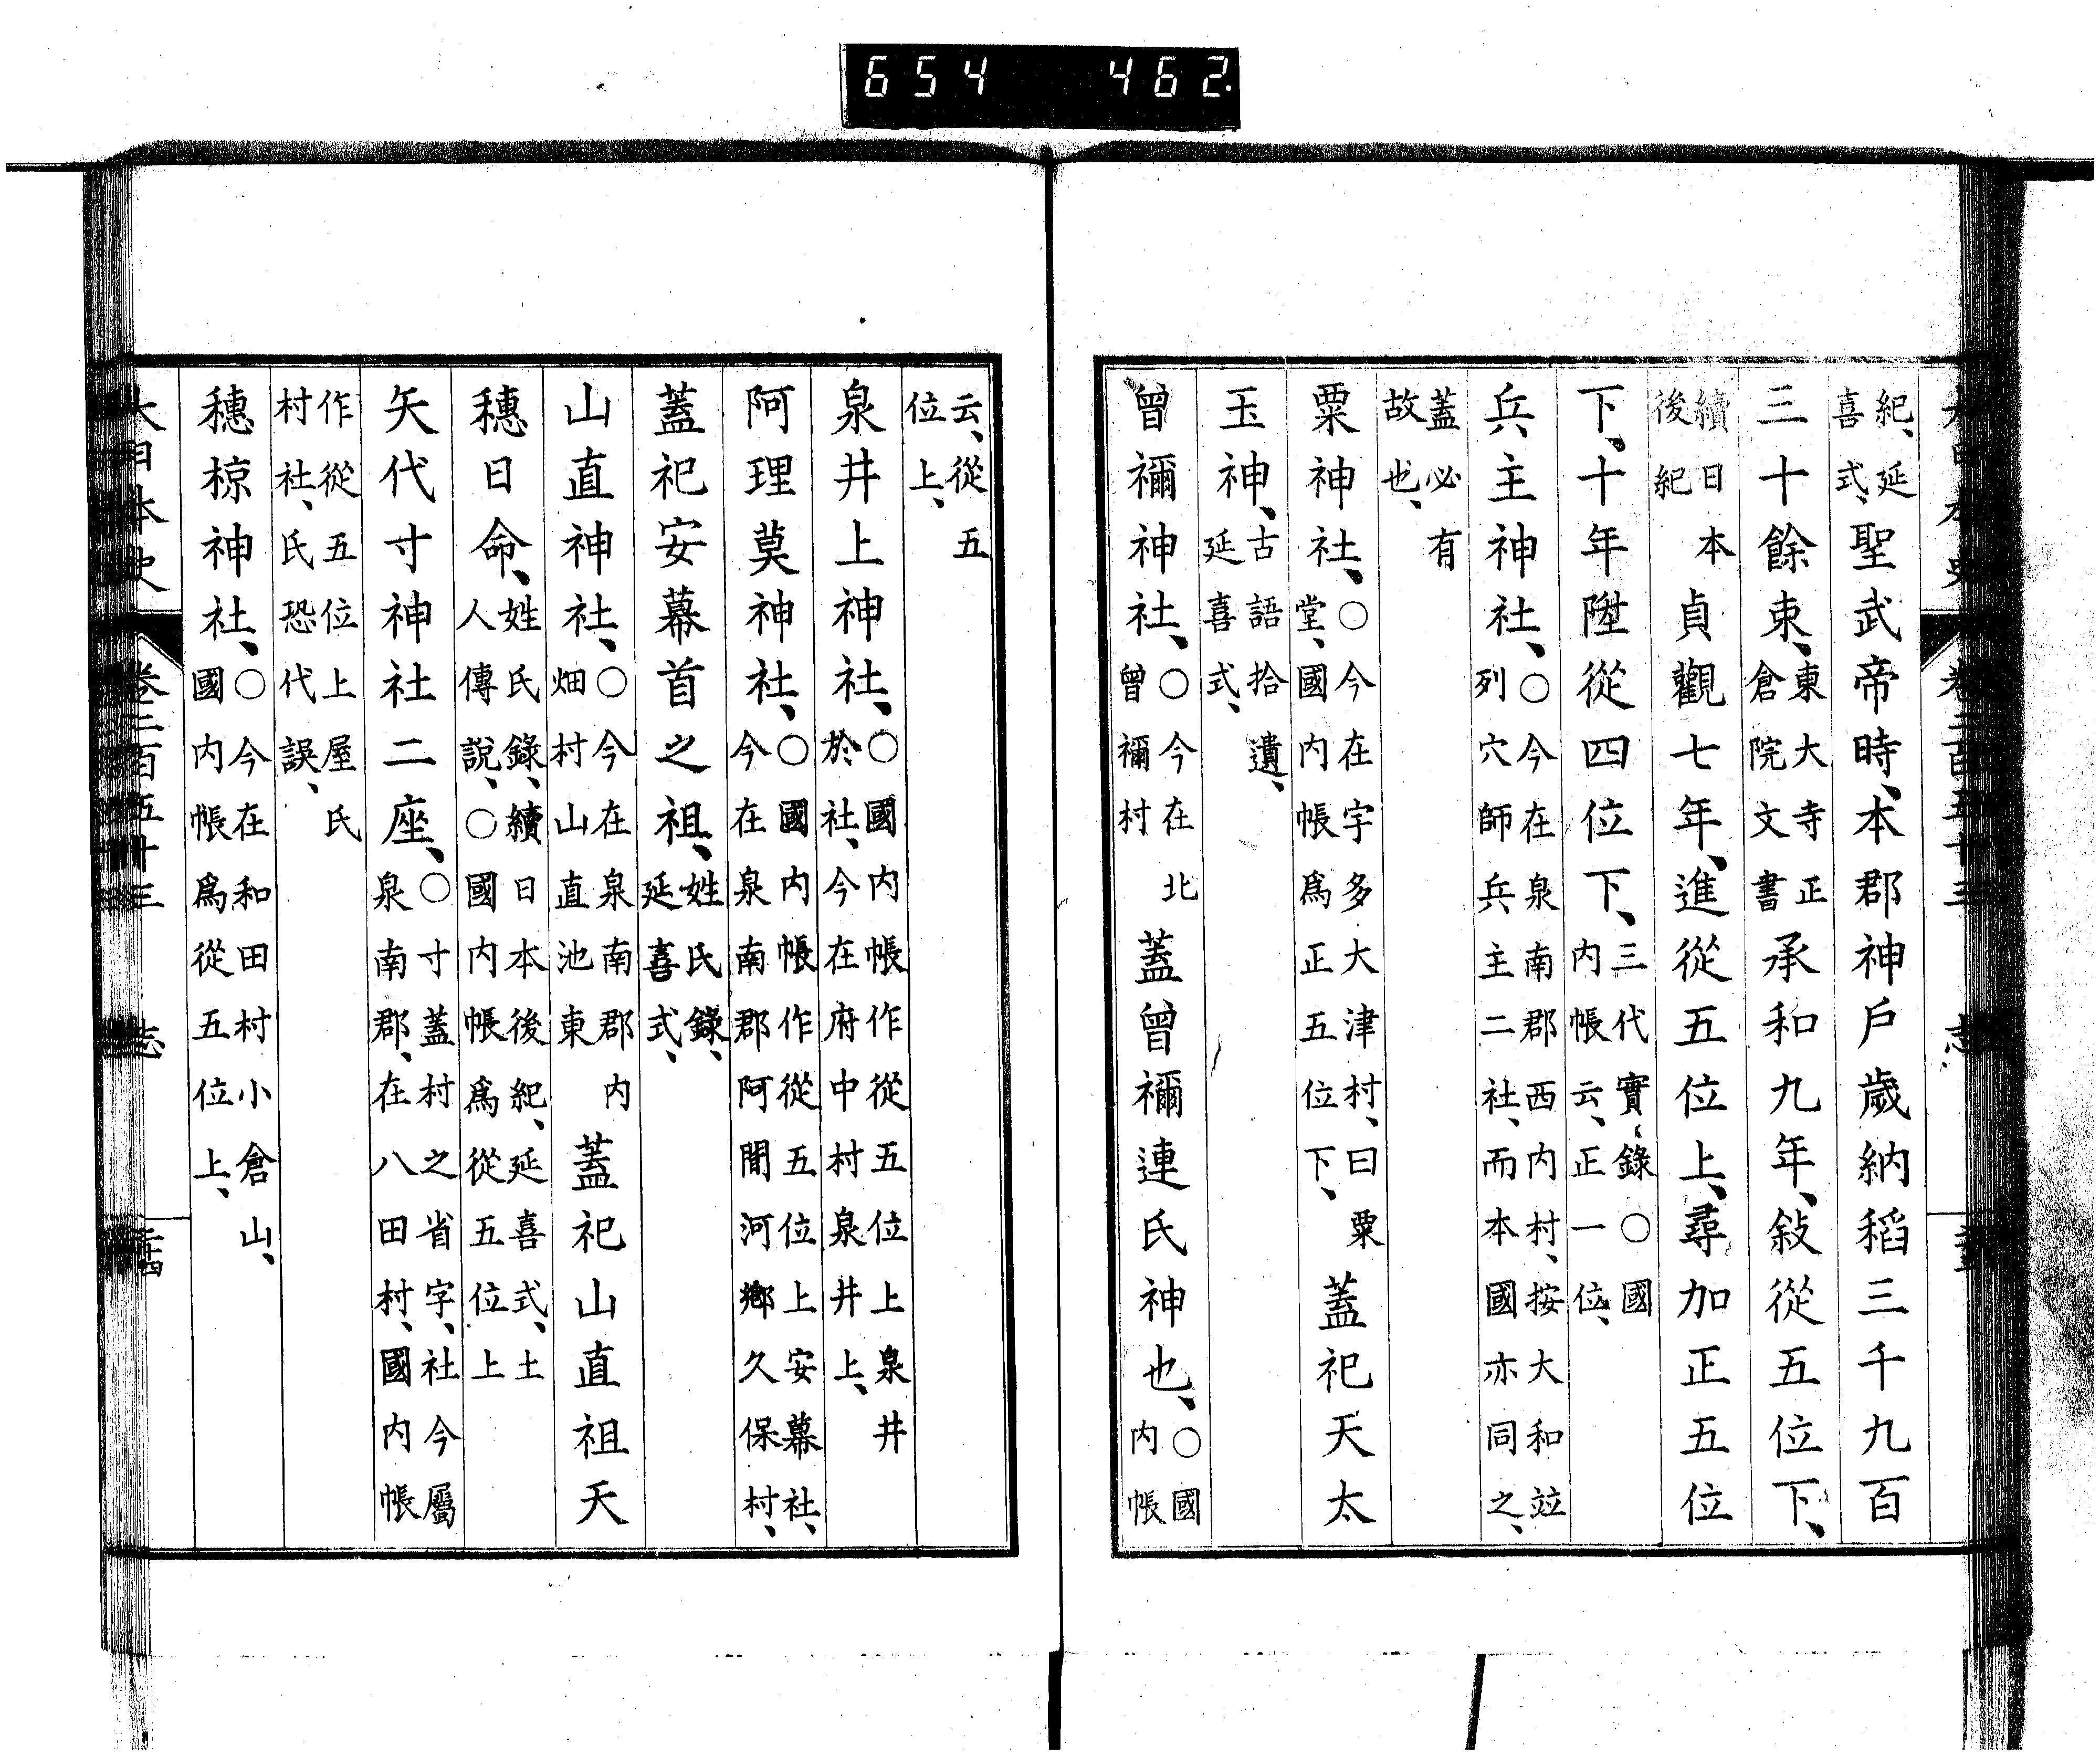 654 462
大日本史 卷二百五十三 志
紀、延喜式、聖武帝時、本郡神戶歲納稻三千九百
三十餘束、東大寺正倉院文書承和九年、敍從五位下、
續日本後紀貞觀七年、進從五位上、尋加正五位
下、十年陞從四位下、三代實錄○國內帳云、正一位、
兵主神社、○今在泉南郡西內村、按大和竝列穴師兵主二社、而本國亦同之、
蓋必有故也、
粟神社、○今在宇多大津村、曰粟堂、國內帳爲正五位下、蓋祀天太
玉神、古語拾遺、延喜式、
曾禰神社、○今在北曾禰村蓋曾禰連氏神也、○國內帳
云、從五位上、
泉井上神社、○國內帳作從五位上泉井於社、今在府中村泉井上、
阿理莫神社、○國內帳作從五位上安幕社、今在泉南郡阿間河鄉久保村、
蓋祀安幕首之祖、姓氏錄、延喜式、
山直神社、○今在泉南郡內畑村山直池東蓋祀山直祖天
穗日命、姓氏錄、續日本後紀、延喜式、土人傳說、○國內帳爲從五位上
矢代寸神社二座、○寸蓋村之省字、社今屬泉南郡、在八田村、國內帳
作從五位上屋氏村社、氏恐代誤、
穗椋神社、○今在和田村小倉山、國內帳爲從五位上、
大日本史 卷二百五十三 志 二十四